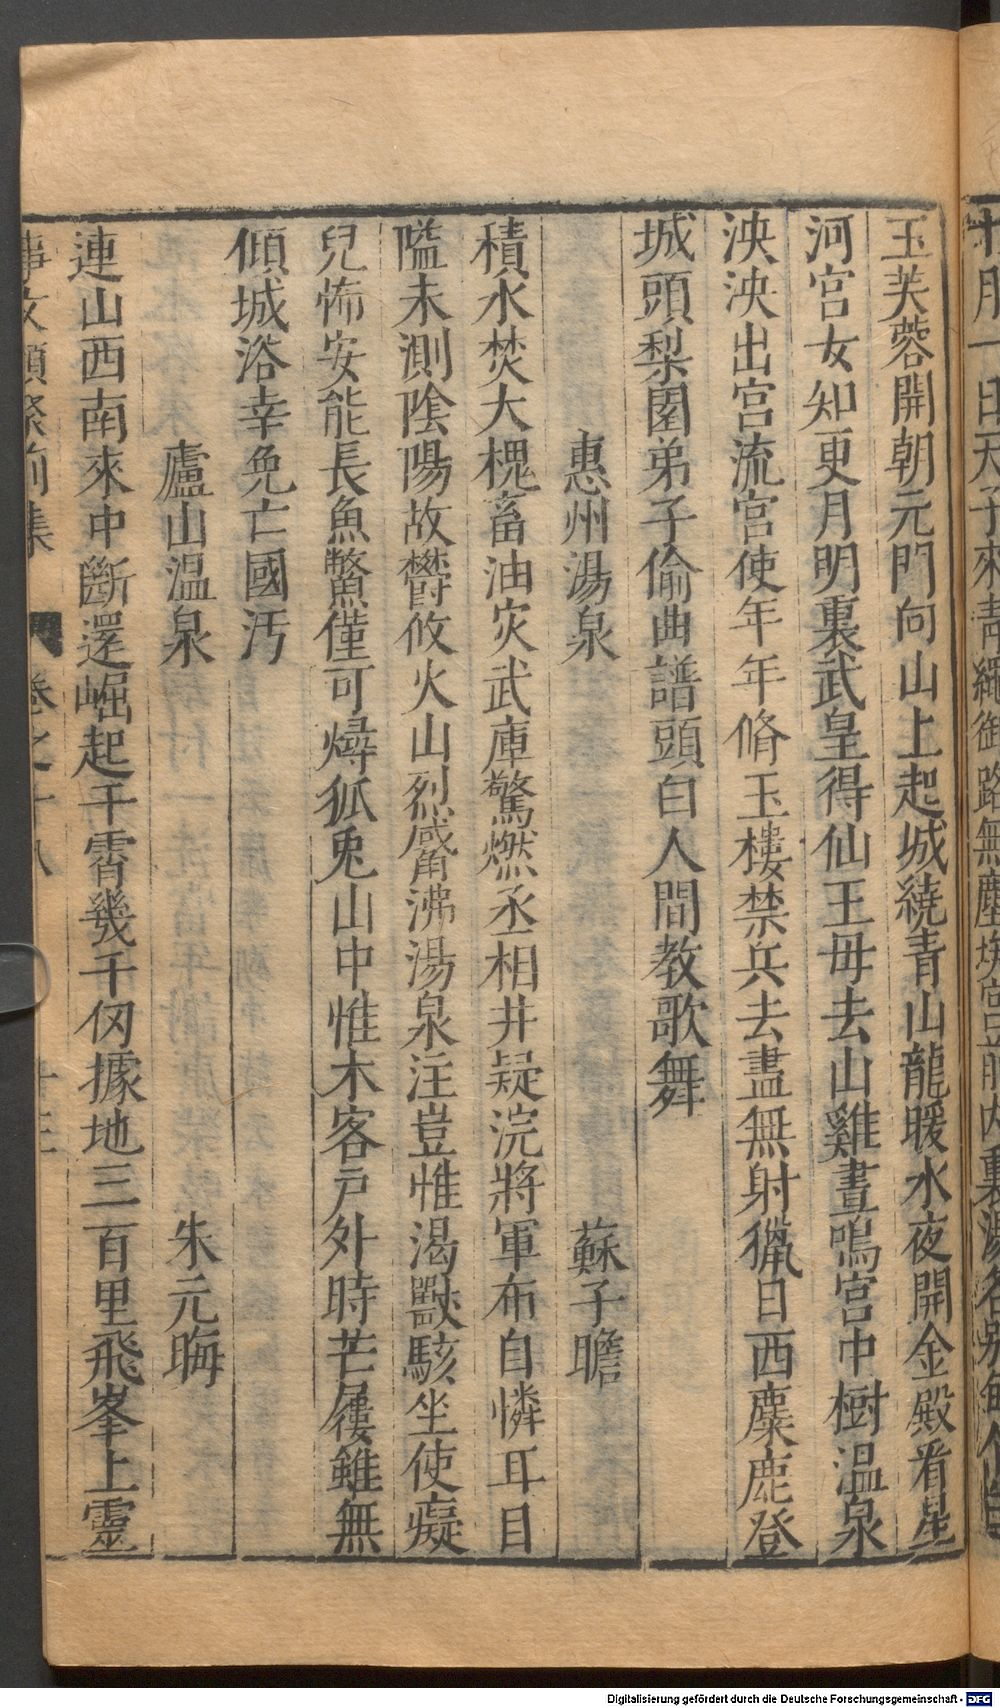 玉芙蓉開朝元門向山上起城繞青山龍暖水夜開金殿看星
河宮女知更月明裏武皇得仙王母去山雞晝鳴宮中樹溫泉
泱泱出宮流宮使年年脩玉樓禁兵去盡無射獵日西麋鹿登
城頭梨園弟子偷曲譜頭白人間教歌舞
惠州湯泉 蘇子瞻
積水焚大槐畜油灾武庫驚燃丞相井疑浣將軍布自憐耳目
隘未測陰陽故欝攸火山烈觱沸湯泉注豈惟渴獸駭坐使癡
兒怖安能長魚鱉僅可燖狐兎山中惟木客戶外時芒屨雖無
傾城浴幸免亡國汚
廬山溫泉 朱元晦
連山西南來中斷還崛起干霄幾千仞據地三百里飛峯上靈
事文類聚前集 卷之十八
Digitalisierung gefördert durch die Deutsche Forschungsgemeinschaft - DFG